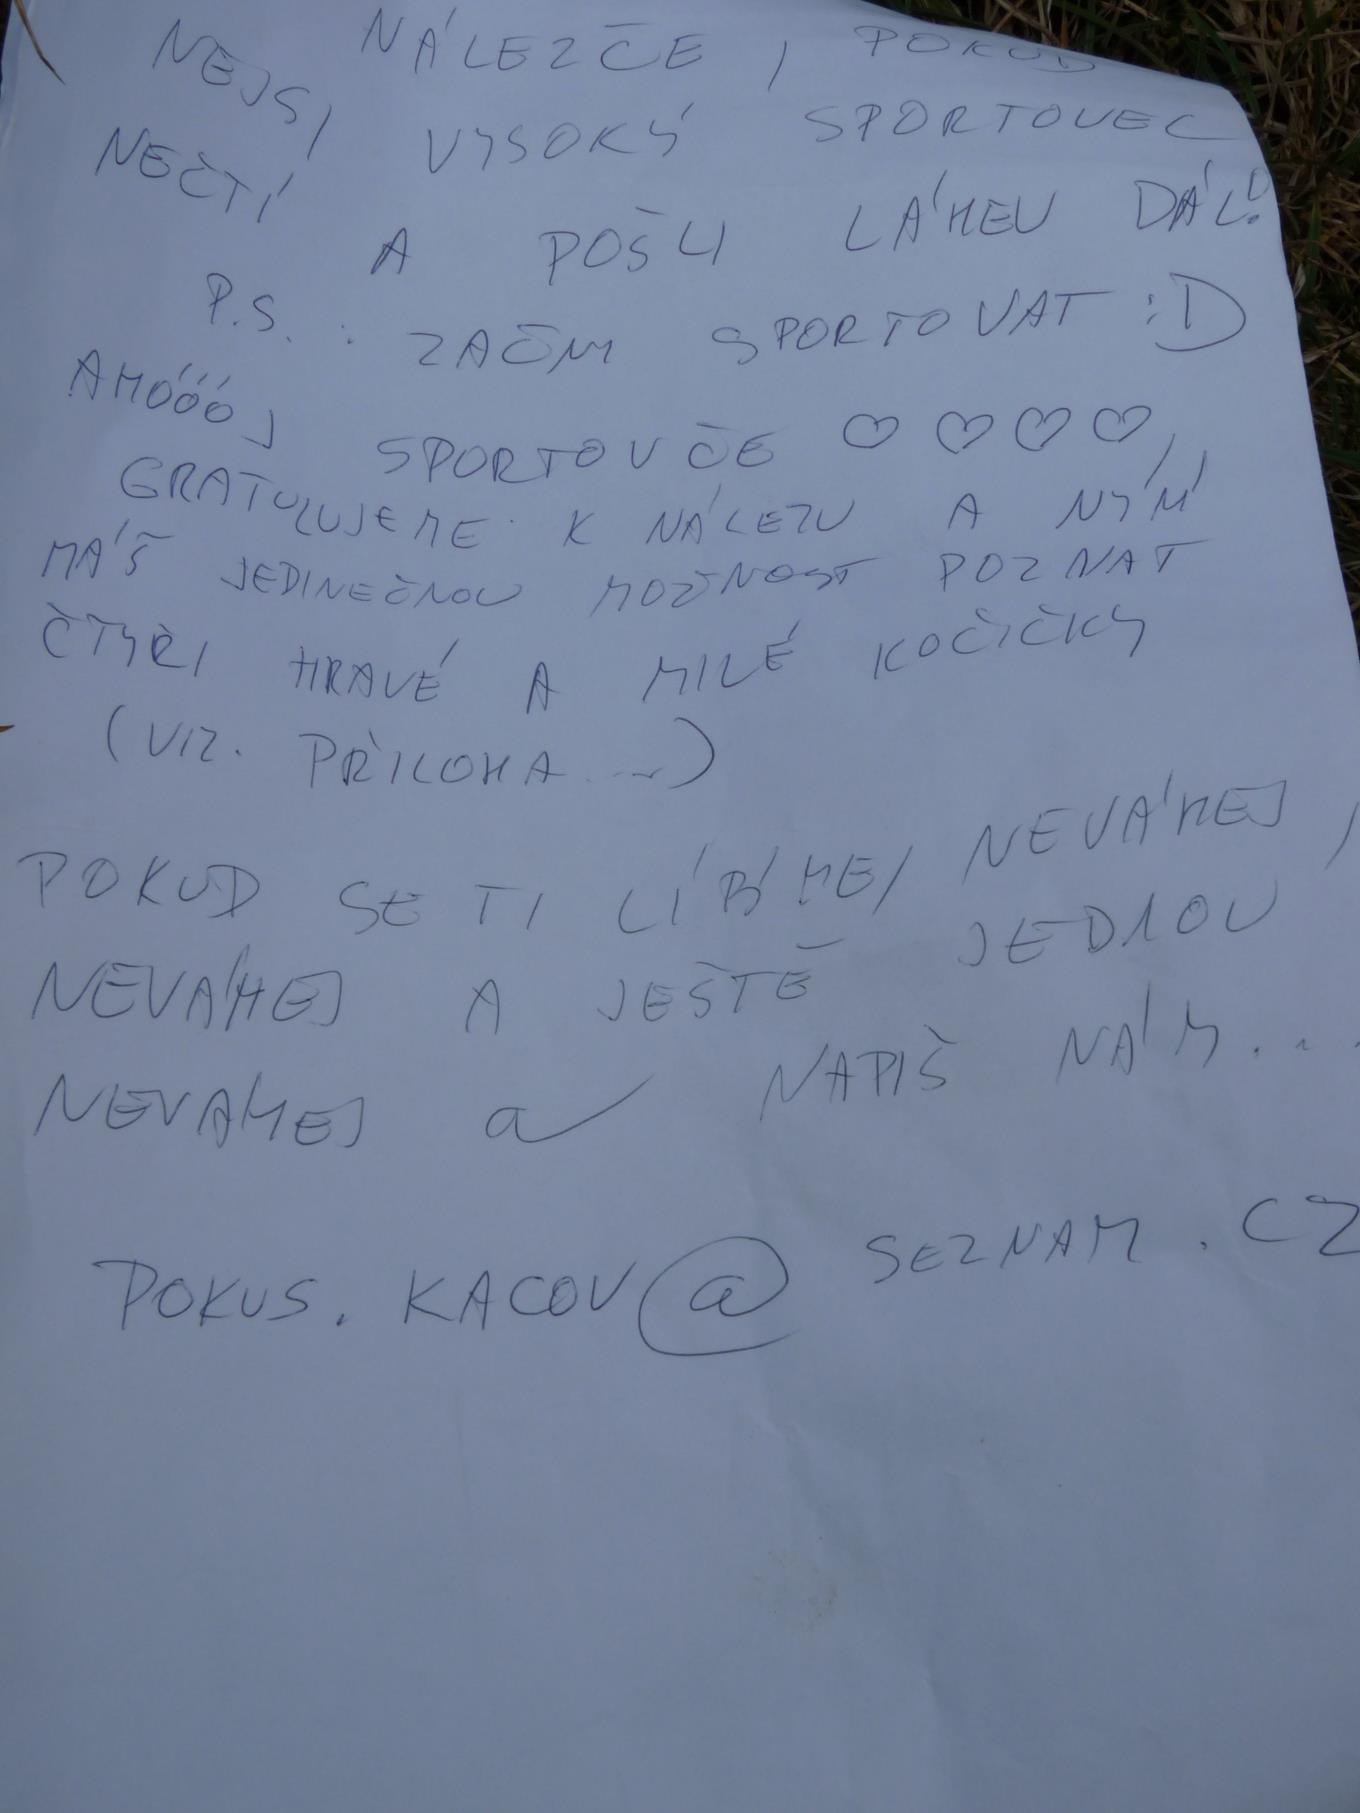 NÁLEZČE, POKUD
NEJSI VYSOKÝ SPORTOVEC
NEČTI A POŠLI LÁHEV DÁL!
P.S. : ZAČNI SPORTOVAT :D
AHÓÓÓJ SPORTOVČE ♡ ♡ ♡ ♡,
GRATULUJEME K NÁLEZU A NYNÍ
MÁŠ JEDINEČNOU MOŽNOST POZNAT
ČTYŘI HRAVÉ A MILÉ KOČIČKY
(VIZ. PŘÍLOHA...)
POKUD SE TI LÍBÍME, NEVÁHEJ,
NEVÁHEJ A JEŠTĚ JEDNOU
NEVÁHEJ a NAPIŠ NÁM...
POKUS.KACOV@SEZNAM.CZ